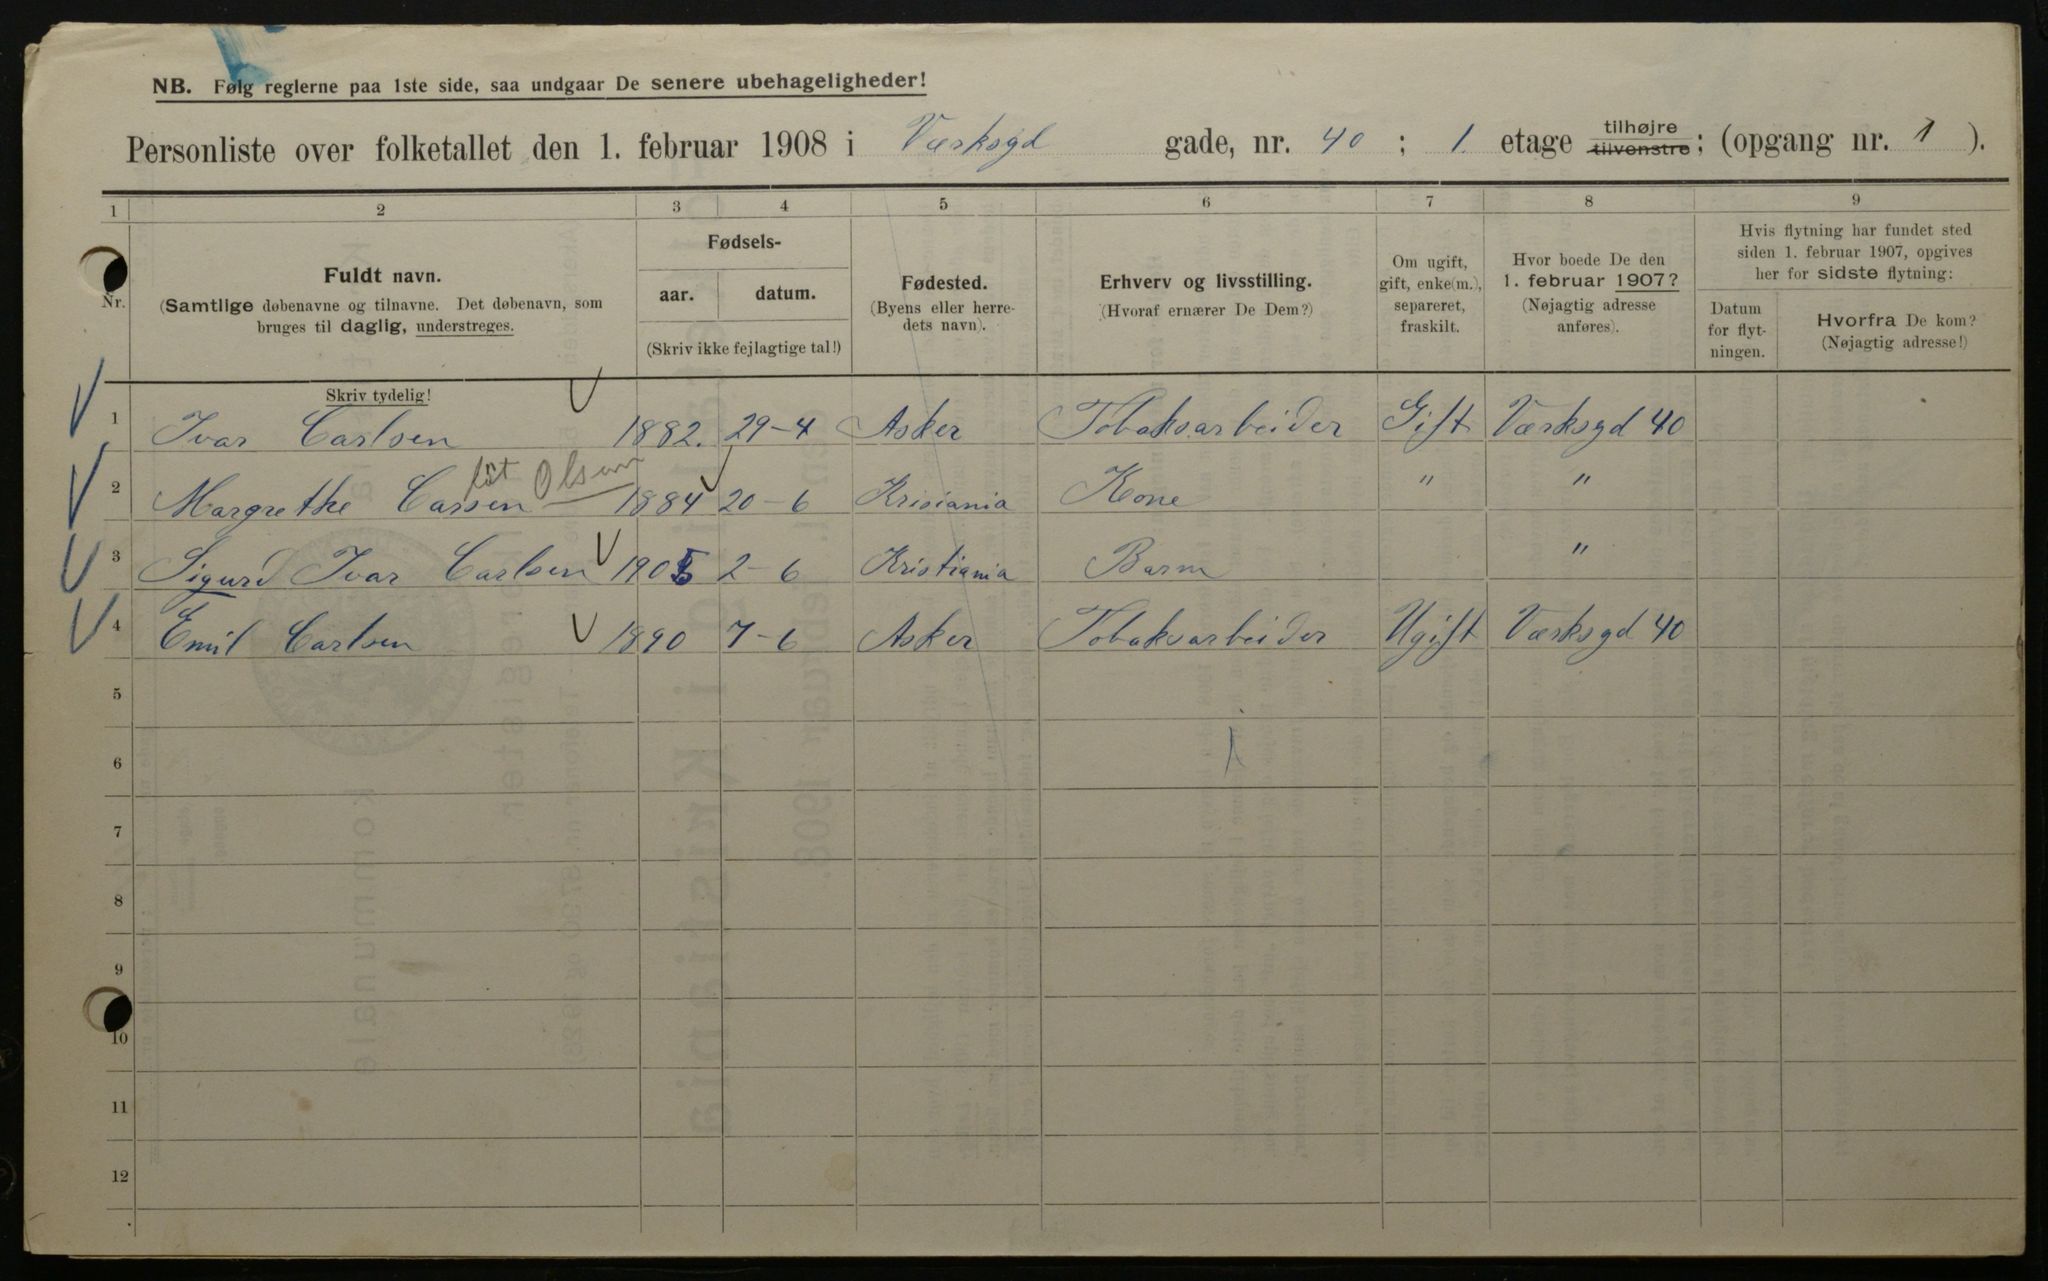 NB. Følg reglerne paa 1ste side, saa undgaar De senere ubehageligheder!
Personliste over folketallet den 1. februar 1908 i Værksgd gade, nr. 40 ; 1. etage tilhøjre tilvenstre; (opgang nr. 1 ).
1 2 3 4 5 6 7 8 9
Nr.
Fuldt navn.
(Samtlige døbenavne og tilnavne. Det døbenavn, som
bruges til daglig, understreges.
Skriv tydelig!
Fødsels-
aar. datum.
(Skriv ikke fejlagtige tal!)
Fødested.
(Byens eller herre-
dets navn).
Erhverv og livsstilling.
(Hvoraf ernærer De Dem?)
Om ugift,
gift, enke(m.),
separeret,
fraskilt.
Hvor boede De den
1. februar 1907?
(Nøjagtig adresse
anføres).
Hvis flytning har fundet sted
siden 1. februar 1907, opgives
her for sidste flytning:
Datum
for flyt-
ningen.
Hvorfra De kom?
(Nøjagtig adresse!)
1 Ivar Carlsen 1882. 29-4 Asker Tobaksarbeider Gift Værksgd 40
föt Olsen
2 Margrethe Carsen 1884 20-6 Krisiania Kone " "
3 Sigurd Ivar Carlsen 1905 2-6 Kristiania Barn "
4 Emil Carlsen 1890 7-6 Asker Tobaksarbeider Ugift Værksgd 40
5
6
7
8
9
10
11
12